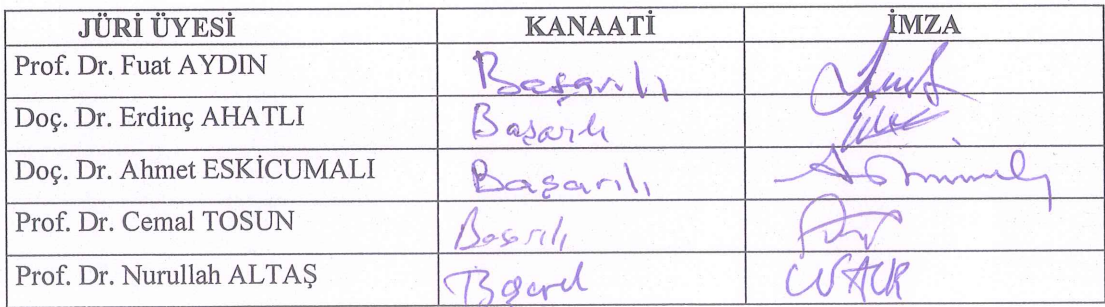 JÜRİ ÜYESİ KANAATİ İMZA
Prof. Dr. Fuat AYDIN Başarılı
Doç. Dr. Erdinç AHATLI Başarılı
Doç. Dr. Ahmet ESKİCUMALI Başarılı
Prof. Dr. Cemal TOSUN Başarılı
Prof. Dr. Nurullah ALTAŞ